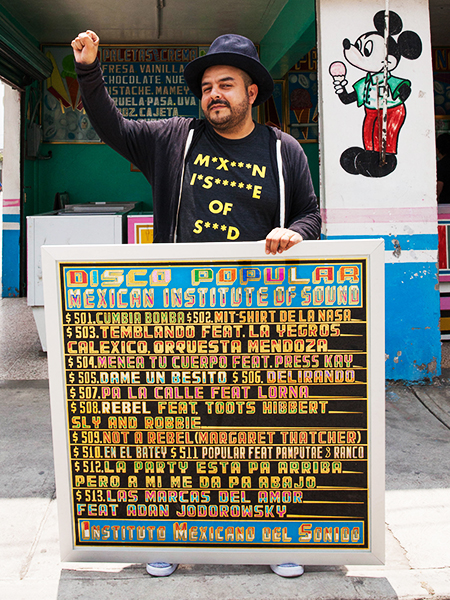 PALETAS-CREMA
FRESA VAINILLA
CHOCOLATE NUE
MUSTACHE, MAMEY
RUELA PASA, UVA
OZ, CAJETA
M*X***N
I*S*****E
OF
S***D
DISCO POPULAR
MEXICAN INSTITUTE OF SOUND
$501.CUMBIA BOMBA $502.MIT SHIRT DE LA NASA
$503.TEMBLANDO FEAT. LA YEGROS
CALEXICO, ORQUESTA MENDOZA
$504.MENEA TU CUERPO FEAT. PRESS KAY
$505.DAME UN BESITO $506.DELIRANDO
$507.PA LA CALLE FEAT LORNA
$508.REBEL FEAT. TOOTS HIBBERT
SLY AND ROBBIE
$509.NOT A REBEL (MARGARET THATCHER)
$510.EN EL BATEY $511.POPULAR FEAT PANPUTAE 3 RANCO
$512.LA PARTY ESTA PA ARRIBA
PERO A MI ME DA PA ABAJO
$513.LAS MARCAS DEL AMOR
FEAT ADAN JODOROWSKY
INSTITUTO MEXICANO DEL SONIDO